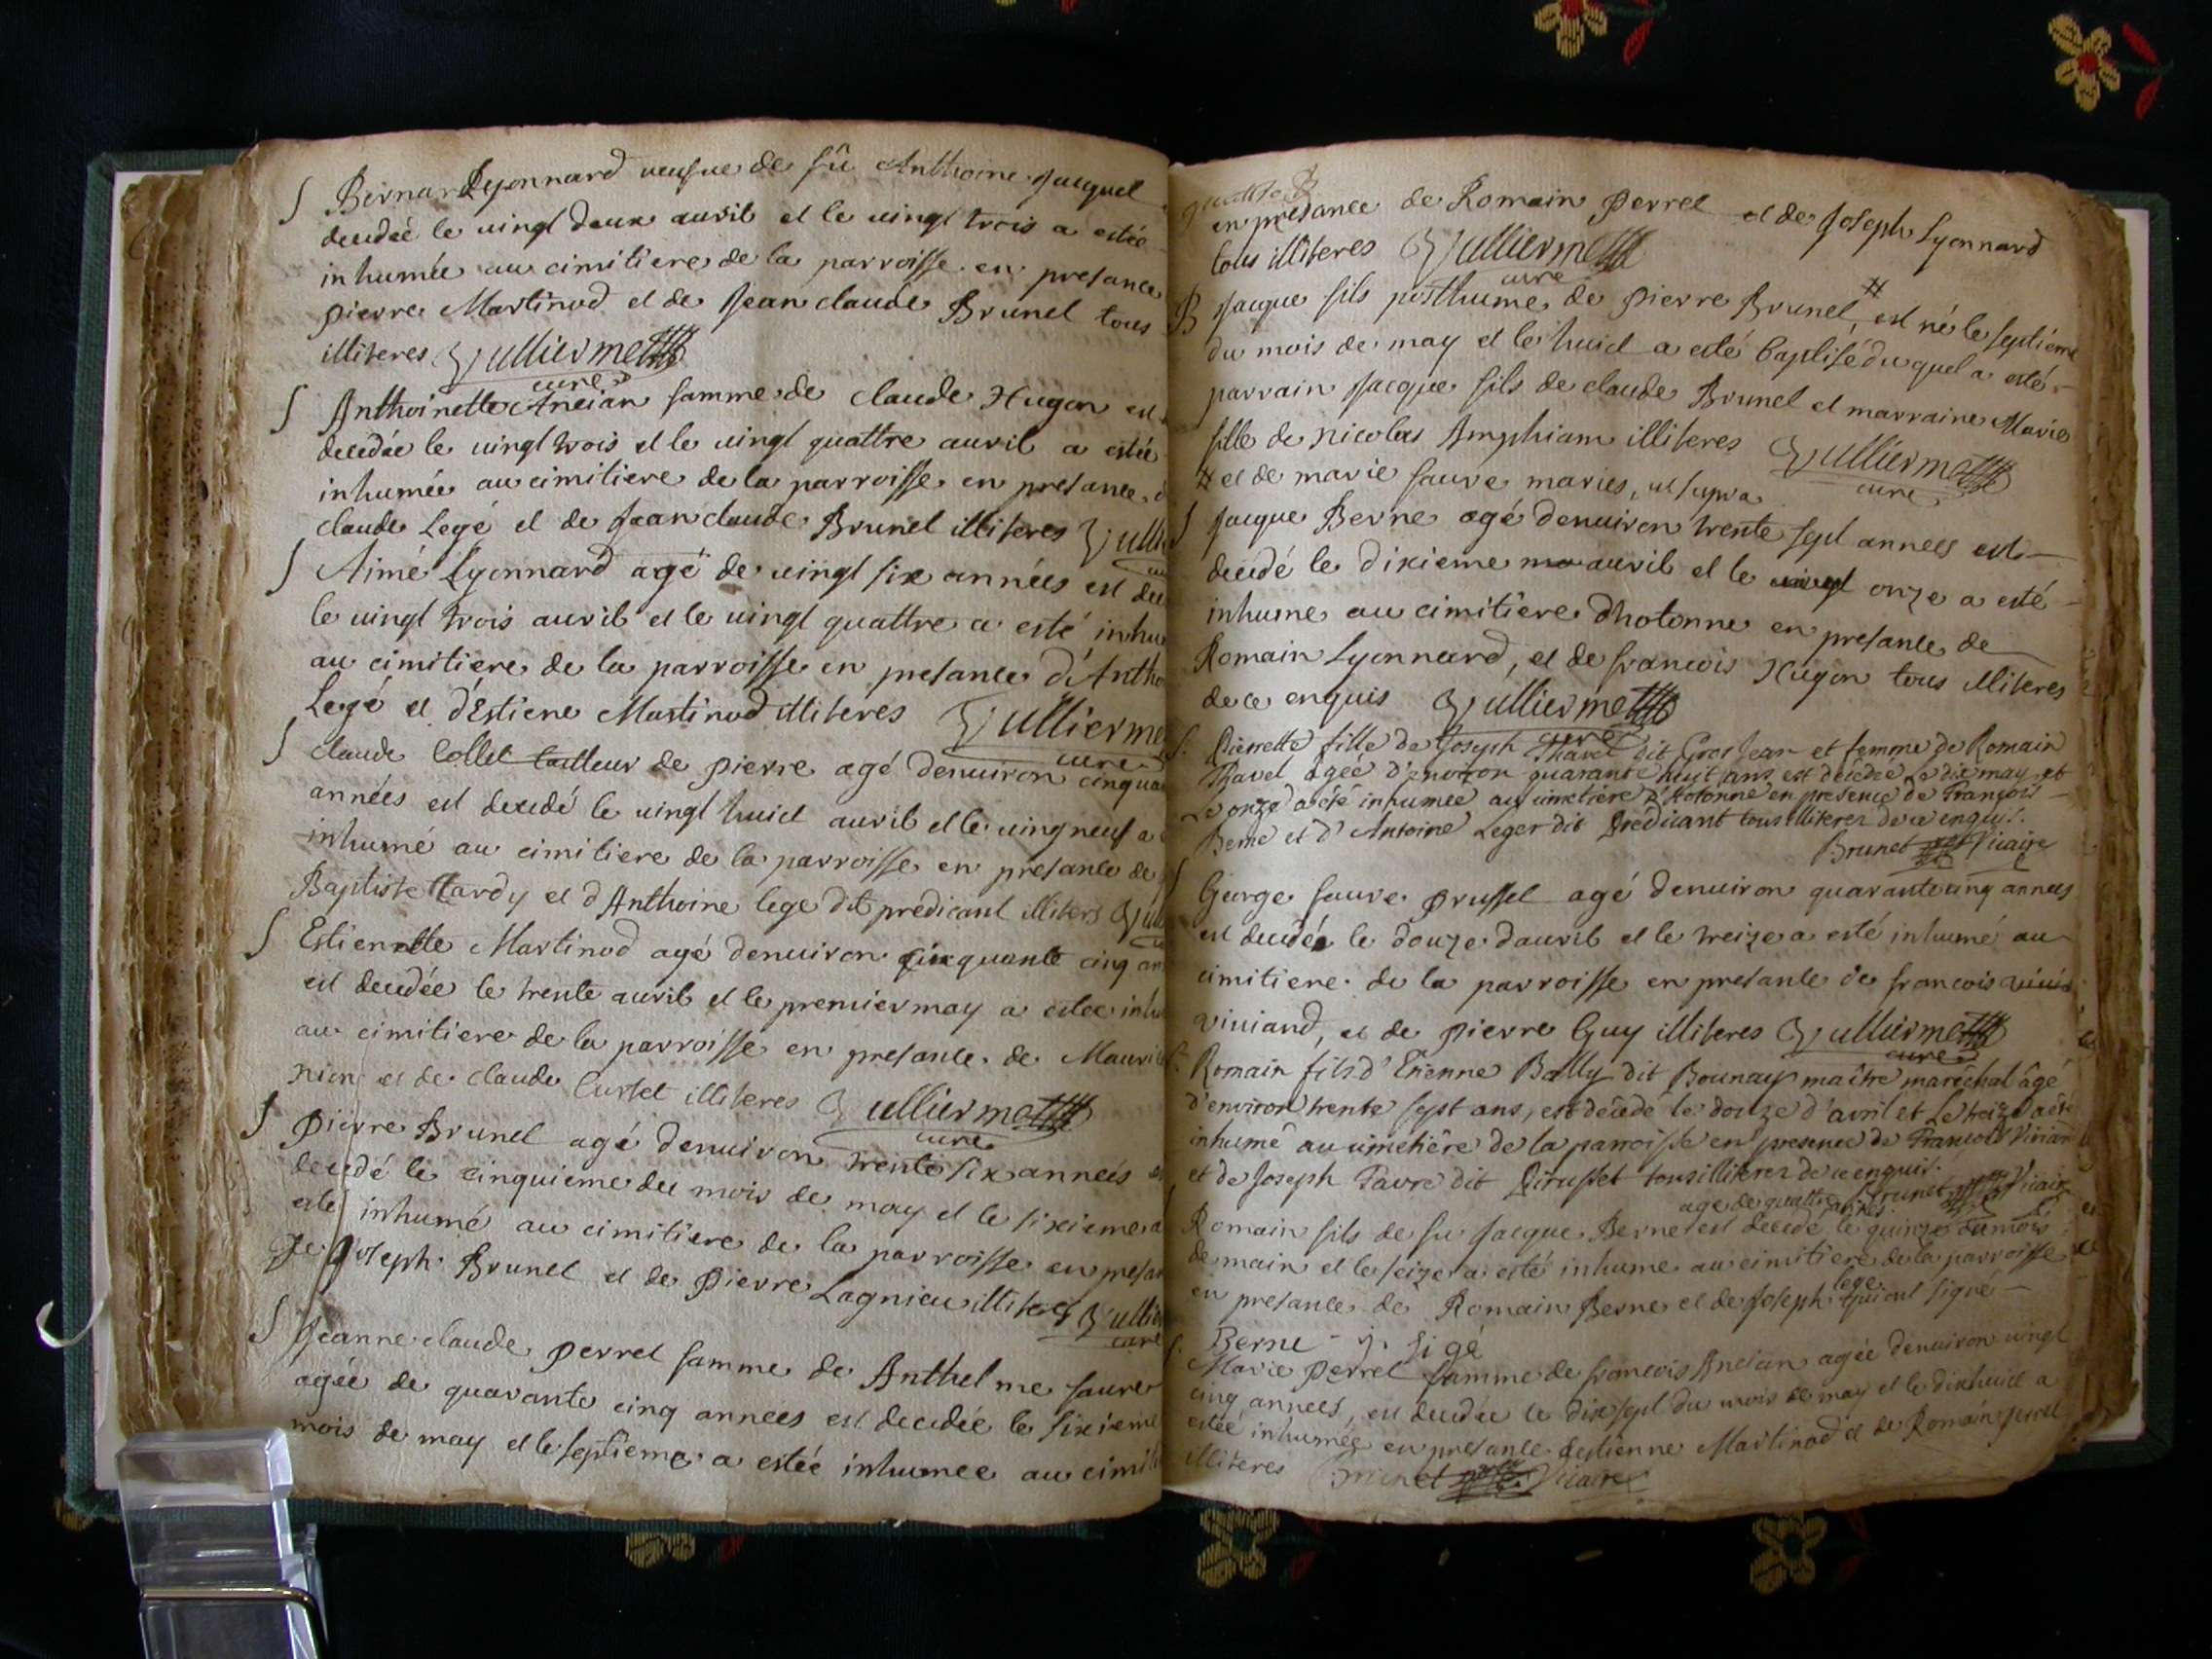 S Bernar Lyonnard veufue de fû Anthoine Jacquet
decedeé le vingt deux auvril et le vingt trois a estée
inhumée au cimitiere de la parroisse en presance
pierre Martinod et de Jean claude Brunet tous
illiteres Gulliermet
curé
S Anthoinette Ancian famme de claude Hugon est
decedée le vingt trois et le vingt quattre auvril a estée
inhumée au cimitiere de la parroisse en presance d
claude Legé et de Jean claude Brunet illiteres Gulli
S Aimé Lyonnard agé de vingt six années est dec
le vingt trois auvril et le vingt quattre a esté inhu
au cimitiere de la parroisse en presance d'Antho
Legé et d'Estiene Martinod illiteres Gullierme
curé
S claude Collet tailleur de pierre agé denuiron cinqua
années est decedé le vingt huict auvril et le vingneuf a
inhumé au cimitiere de la parroisse en presance de
Baptiste tardy et d Anthoine lege dit predicant illiters
S Estiennette Martinod agé denuiron cinquante cinq an
est decedée le trente auvril et le premier may a estee inhu
au cimitiere de la parroisse en presance de Mauri
et de claude Curtet illiteres Gulliermet
curé
S pierre Brunet agé denuiron trente six anneés e
decedé le cinquieme du mois de may et le sixieme a
esté inhumé au cimitiere de la parroisse en presan
de Joseph Brunet et de pierre Lagnieu illiteres Gullier
curé
S Jeanne claude perret famme de Anthelme faure
agée de quarante cinq annees est decedée le sixieme
mois de may et le septieme a estée inhumee au cimit
en presance de Romain perret et de Joseph Lyonnard
tous illiteres Gulliermet
curé
B Jacque fils posthume de pierre Brunet, # est né le septiéme
du mois de may et le huict a esté baptisé du quel a esté
parrain Jacque fils de claude Brunet et marraine Marie
fille de nicolas Amphiam illiteres Gulliermet
curé
# et de marie faure maries, ut supra
S Jacque Berne agé denuiron trente sept années est
decédé le dixieme auvril et le onze a esté
inhume au cimitiere dhotonne en presance de
Romain Lyonnard, et de francois Hugon tous illiteres
de ce enquis Gulliermet
curé
S. Pierrette fille de Joseph Thavel dit Gros Jean et femme de Romain
Thavel âgée d'environ quarante huit ans est décédée le dix may et
Le onze a été inhumée au cimetière d'Hotonne en presence de François
Berne et d'Antoine Leger dit Prédicant tous illiteres de ce enquis.
Brunet Vicaire
S George faure prussel agé denuiron quarante cinq années
est decedé le douze dauvril et le treize a esté inhumé au
cimitiere de la parroisse en presante de francois
viviand, et de pierre Guy illiteres Gulliermet
curé
S. Romain fils d'Etienne Bally dit Bounay maître maréchal âgé
d'environ trente sept ans, est décédé le douze d'avril et Le treize a été
inhumé au cimetière de la parroisse en presence de François Vivian
et de Joseph Favre dit Prusset tous illiteres de ce enquis.
Brunet Vicaire
age de quattre années
Romain fils de fu Jacque Berne est decedé le quinze du mois
de main et le seize a esté inhume au cimitiere de la parroisse
en presance de Romain Berne et de Joseph lege qui ont signé
Berne - j. ligé
S. Marie perret famme de francois Ancian agée denuiron vingt
cinq années, est decedée le dix sept du mois de may et le dixhuit a
estée inhumée en presance destienne Martinod et de Romain perret
illiteres Brunet Vicaire